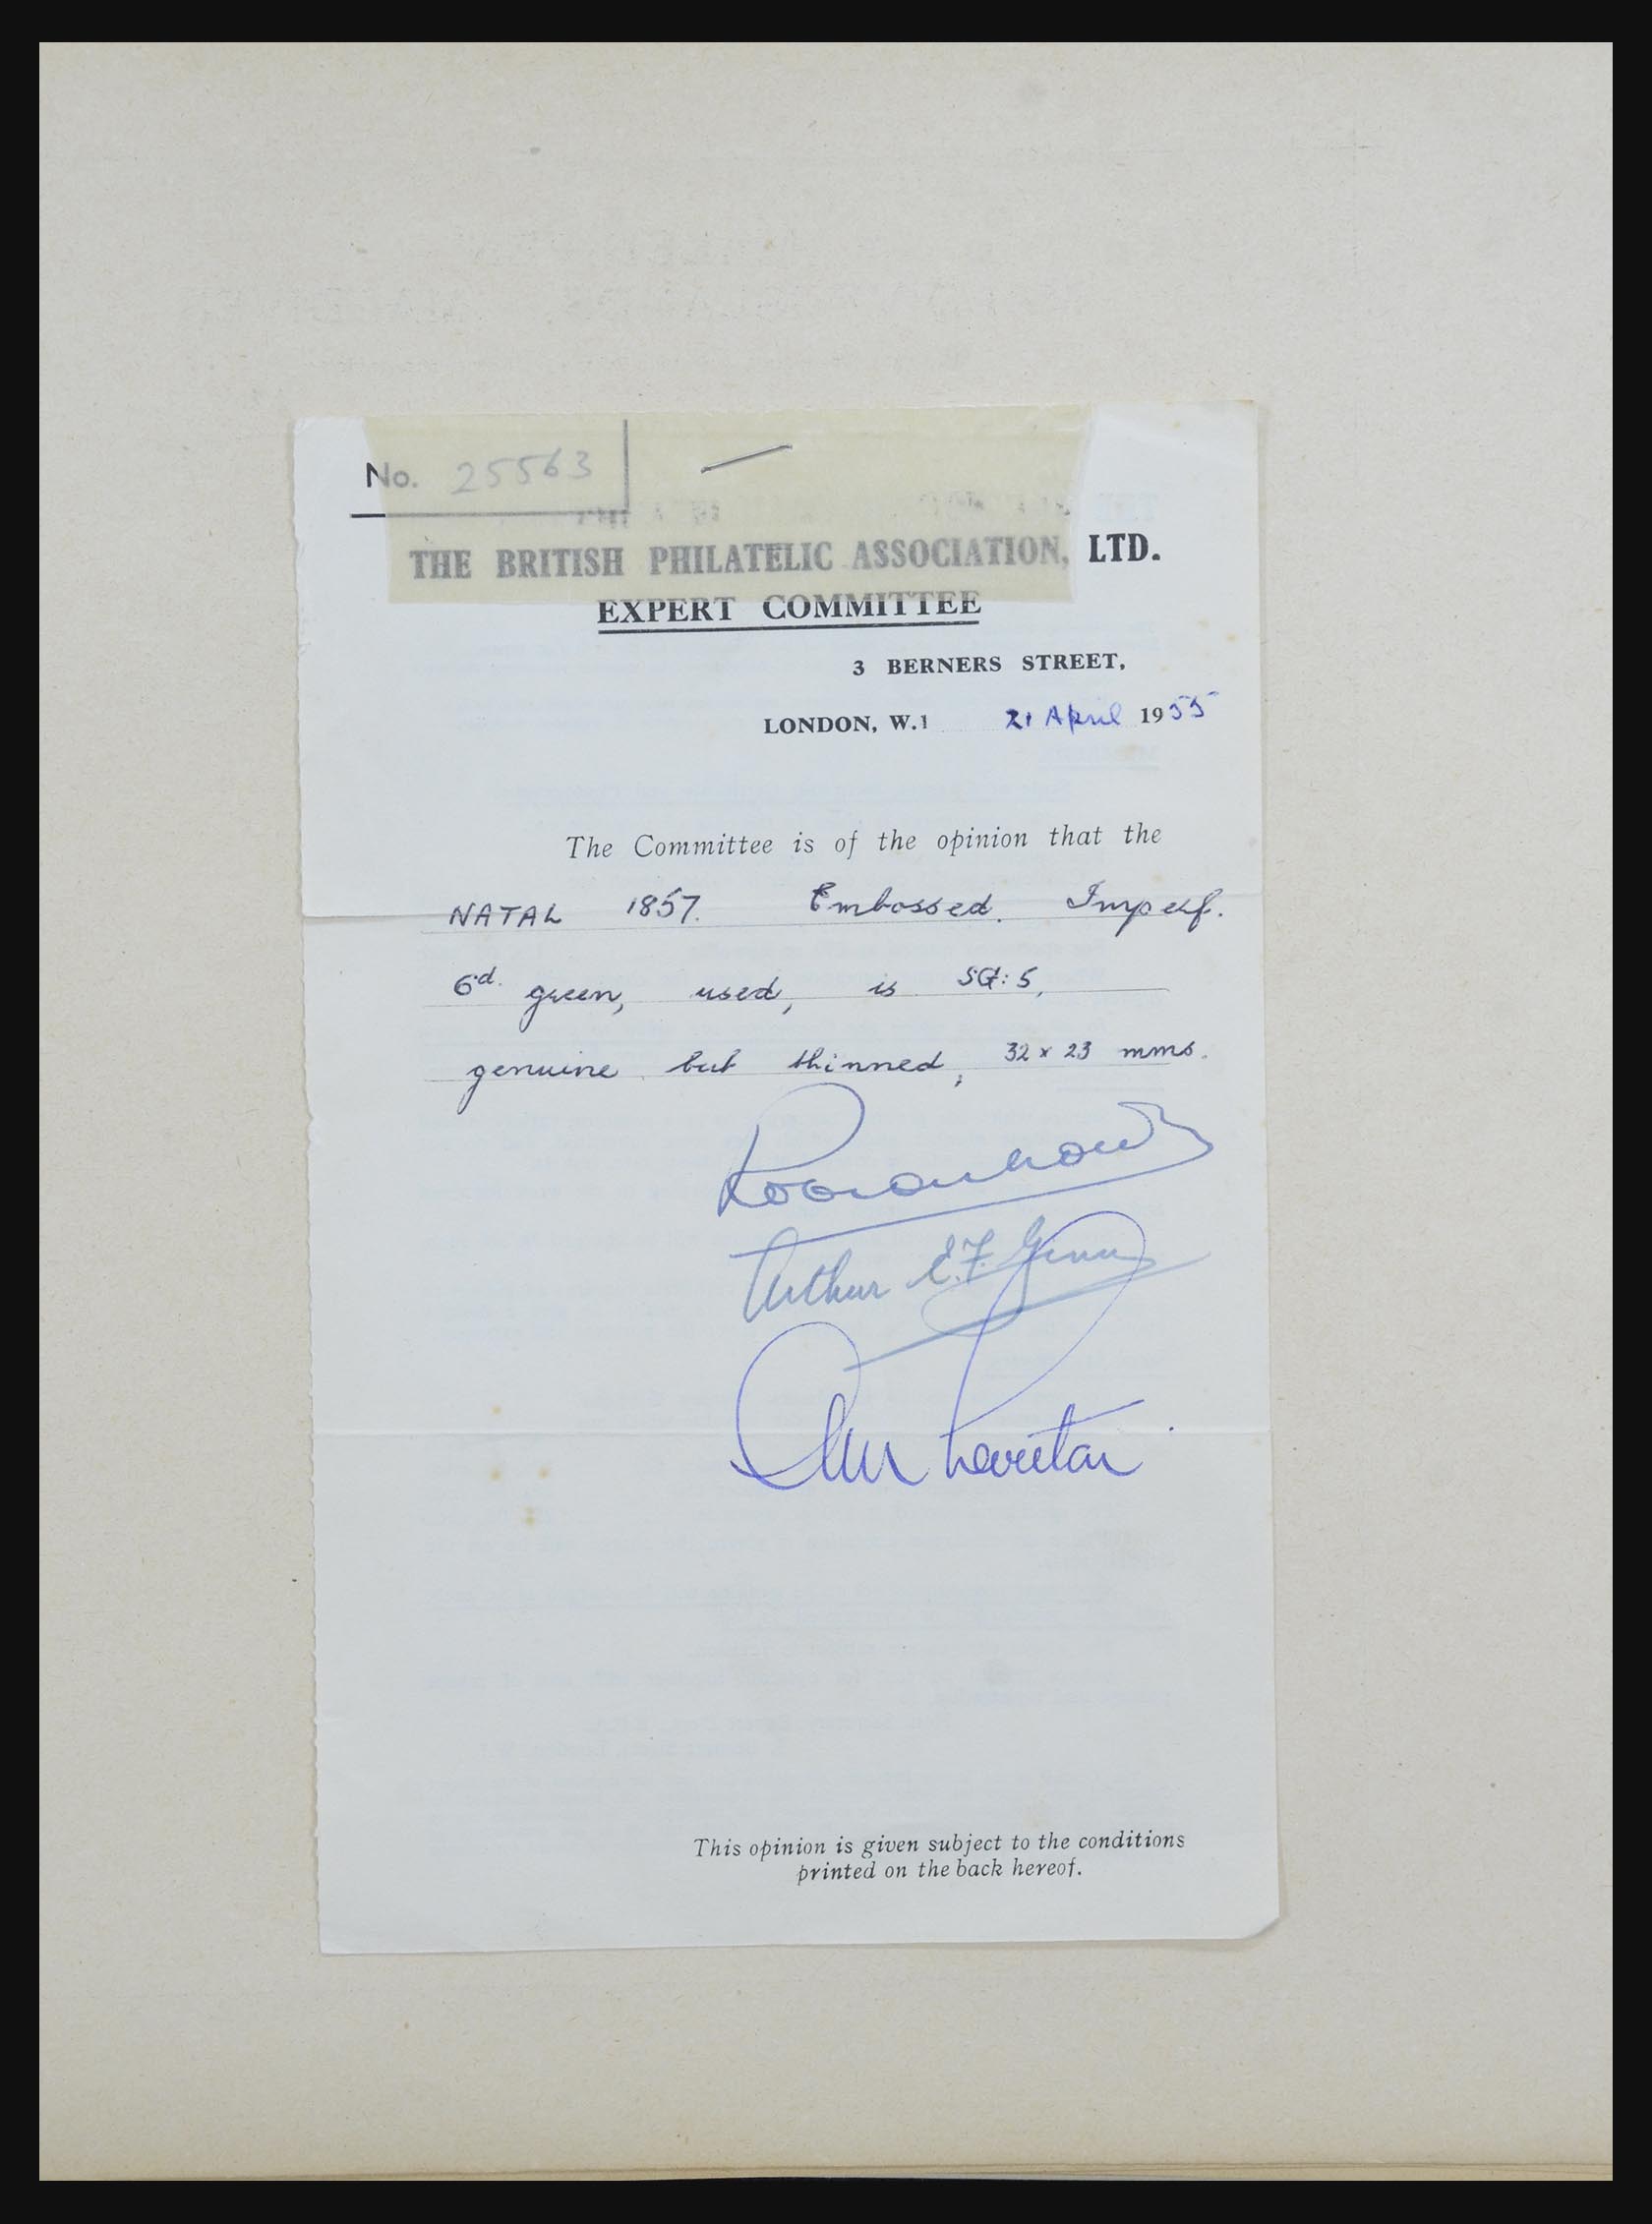 No. 25563
THE BRITISH PHILATELIC ASSOCIATION, LTD.
EXPERT COMMITTEE
3 BERNERS STREET,
LONDON, W.1 21 April 1955
The Committee is of the opinion that the
NATAL 1857. Embossed. Imperf.
6d. green, used, is SG: 5,
genuine but thinned, 32 x 23 mms.
Arthur E.F. Ginn
This opinion is given subject to the conditions
printed on the back hereof.